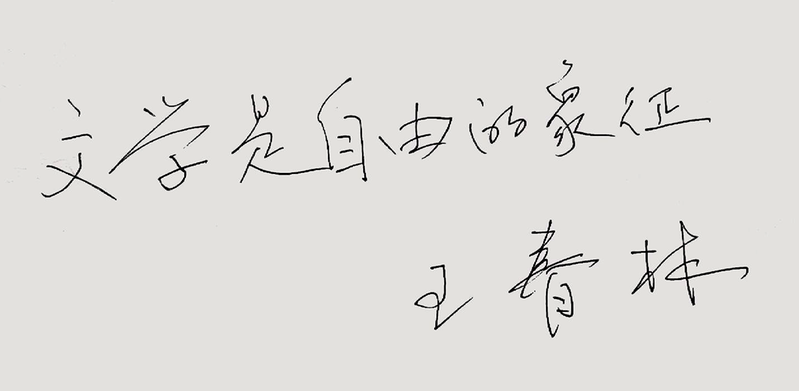 文学是自由的象征
王春林